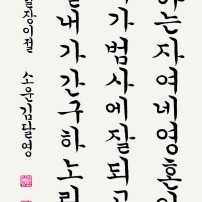 하는자여네영혼이
가범사에잘되고
를내가간구하노라
일장이절
소운김달영